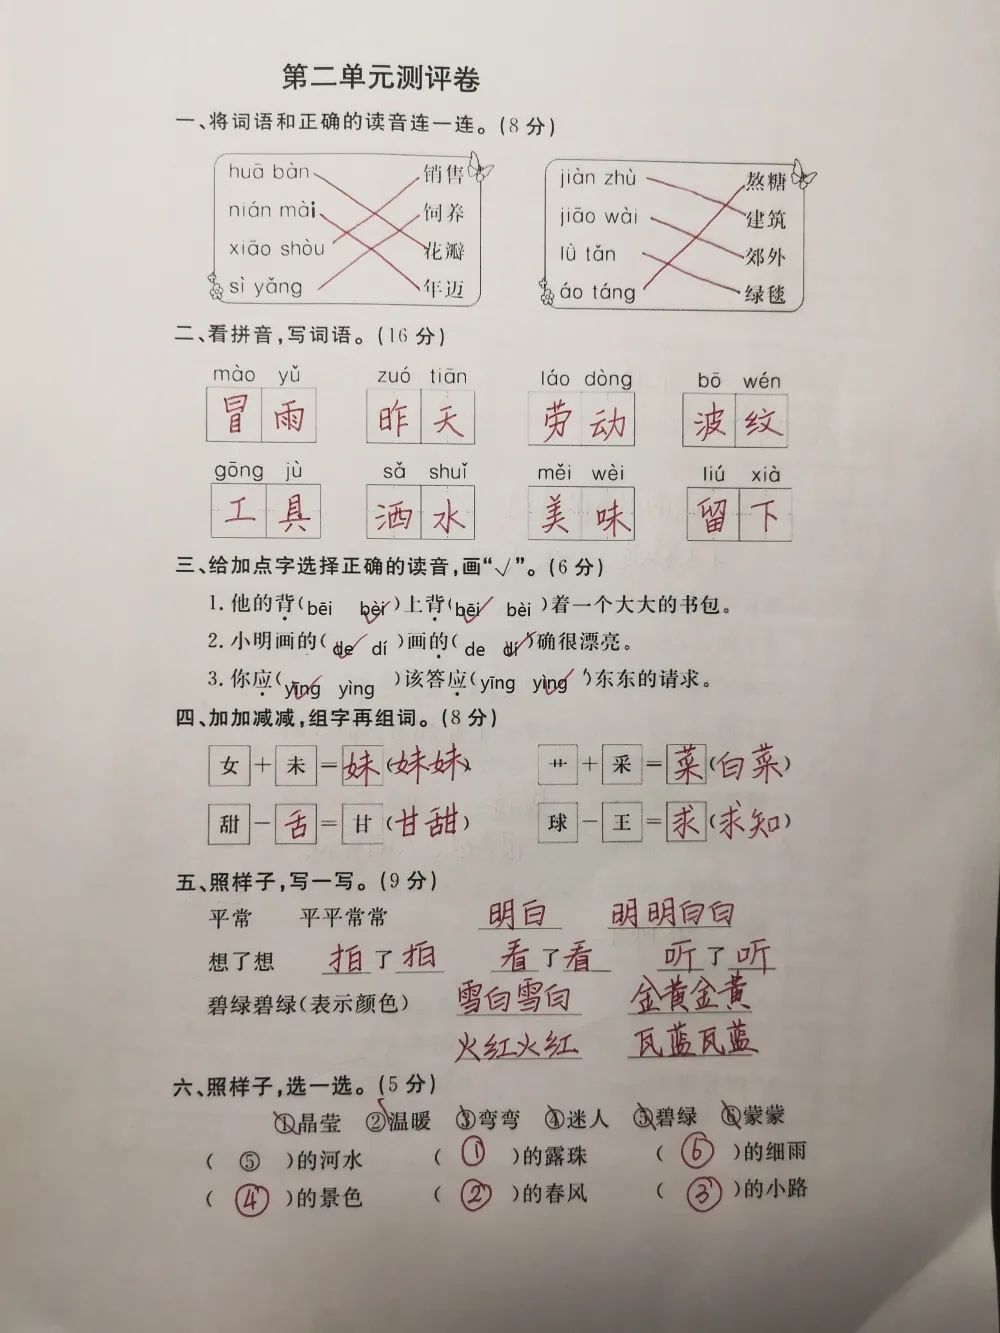 第二单元测评卷
一、将词语和正确的读音连一连。(8分)
huā bàn 销售 jiàn zhù 熬糖
nián mài 饲养 jiāo wài 建筑
xiāo shòu 花瓣 lǜ tǎn 郊外
sì yǎng 年迈 áo táng 绿毯
二、看拼音,写词语。(16分)
mào yǔ zuó tiān láo dòng bō wén
冒雨 昨天 劳动 波纹
gōng jù sǎ shuǐ měi wèi liú xià
工具 洒水 美味 留下
三、给加点字选择正确的读音,画“√”。(6分)
1. 他的背(bēi bèi√)上背(bēi√ bèi)着一个大大的书包。
2. 小明画的(de√ dí)画的(de dí√)确很漂亮。
3. 你应(yīng√ yìng)该答应(yīng yìng√)东东的请求。
四、加加减减,组字再组词。(8分)
女+未=妹(妹妹) 艹+采=菜(白菜)
甜-舌=甘(甘甜) 球-王=求(求知)
五、照样子,写一写。(9分)
平常 平平常常 明白 明明白白
想了想 拍了拍 看了看 听了听
碧绿碧绿(表示颜色) 雪白雪白 金黄金黄
火红火红 瓦蓝瓦蓝
六、照样子,选一选。(5分)
①晶莹 ②温暖 ③弯弯 ④迷人 ⑤碧绿 ⑥蒙蒙
( ⑤ )的河水 ( ① )的露珠 ( ⑥ )的细雨
( ④ )的景色 ( ② )的春风 ( ③ )的小路